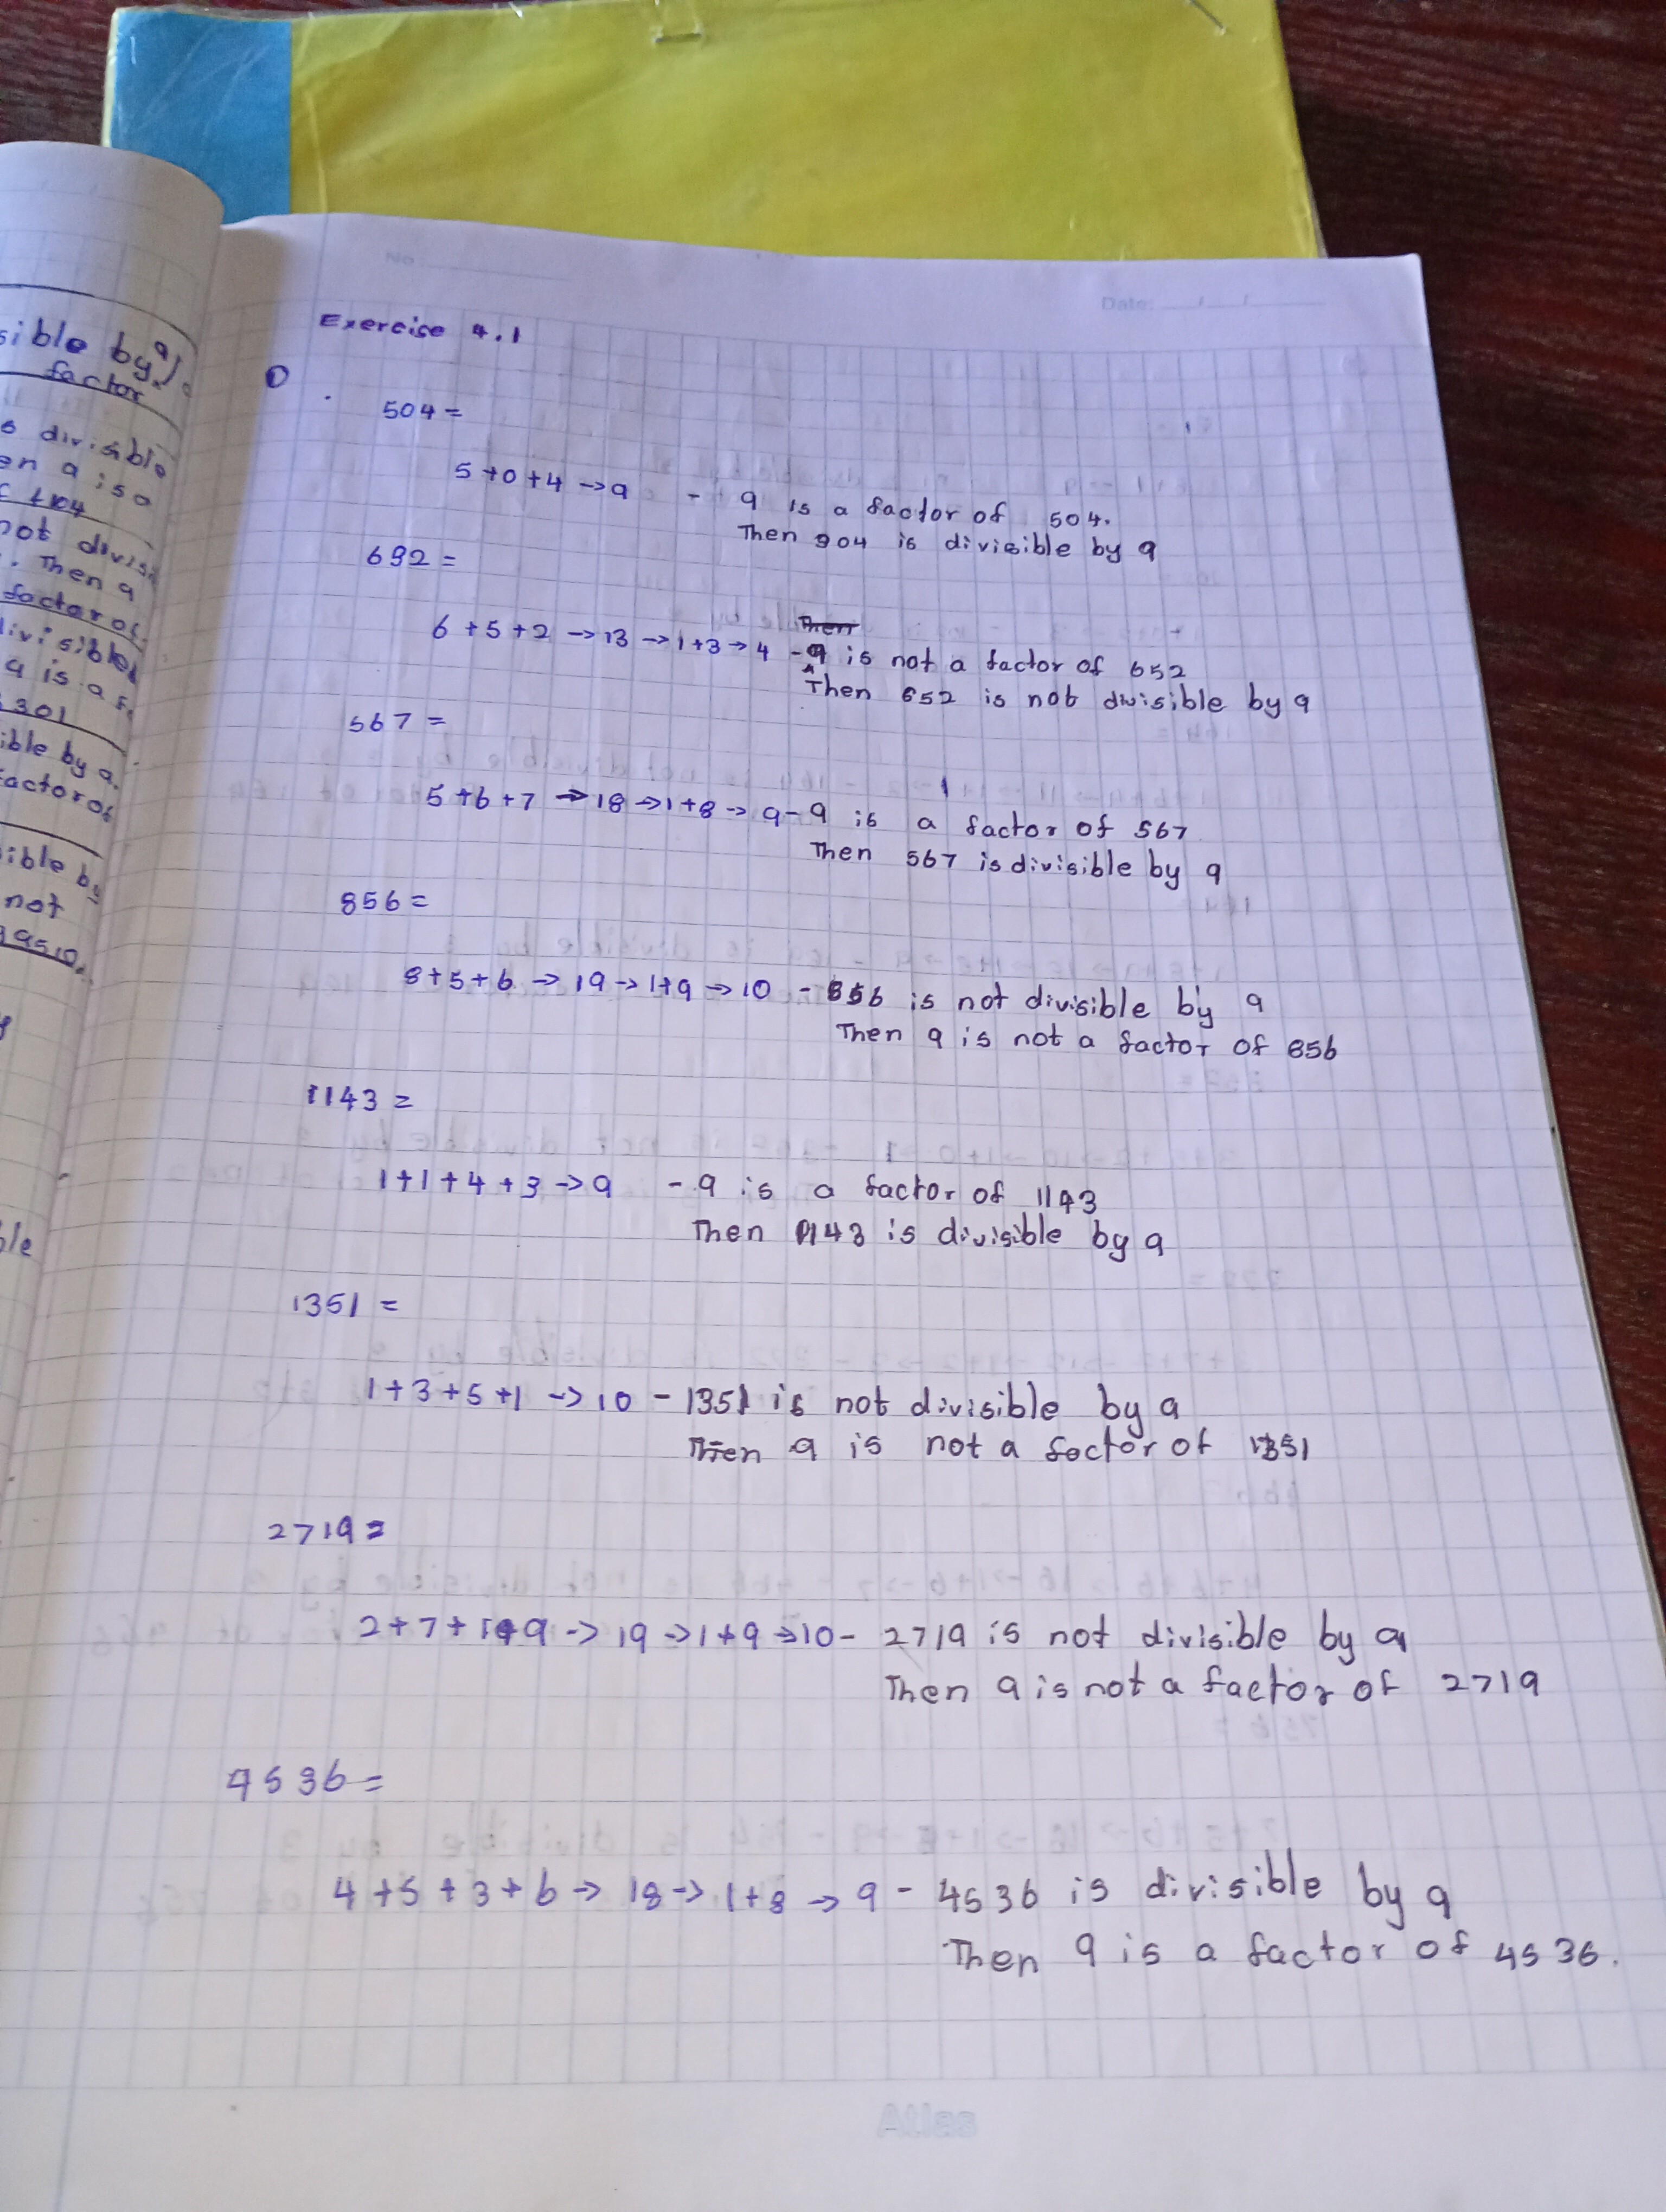 sible by 9).
factor
s divisible
en 9 is a
not divisi
. Then 9
factor of
divisible
9 is a f
301
ible by 9.
factor of
ible by
not
9510.
ble
No
Date:
Exercise 4.1
①
504 =
5 + 0 + 4 → 9 - 9 is a factor of 504.
Then 904 is divisible by 9
692 =
Then
6 + 5 + 2 → 13 → 1 + 3 → 4 - 9 is not a factor of 652
Then 652 is not divisible by 9
567 =
5 + 6 + 7 → 18 → 1 + 8 → 9 - 9 is a factor of 567
Then 567 is divisible by 9
856 =
8 + 5 + 6 → 19 → 1 + 9 → 10 - 856 is not divisible by 9
Then 9 is not a factor of 856
1143 =
1 + 1 + 4 + 3 → 9 - 9 is a factor of 1143
Then 1143 is divisible by 9
1351 =
1 + 3 + 5 + 1 → 10 - 1351 is not divisible by 9
Then 9 is not a factor of 1351
2719 =
2 + 7 + 1 + 9 → 19 → 1 + 9 → 10 - 2719 is not divisible by 9
Then 9 is not a factor of 2719
4536 =
4 + 5 + 3 + 6 → 18 → 1 + 8 → 9 - 4536 is divisible by 9
Then 9 is a factor of 4536.
Atlas